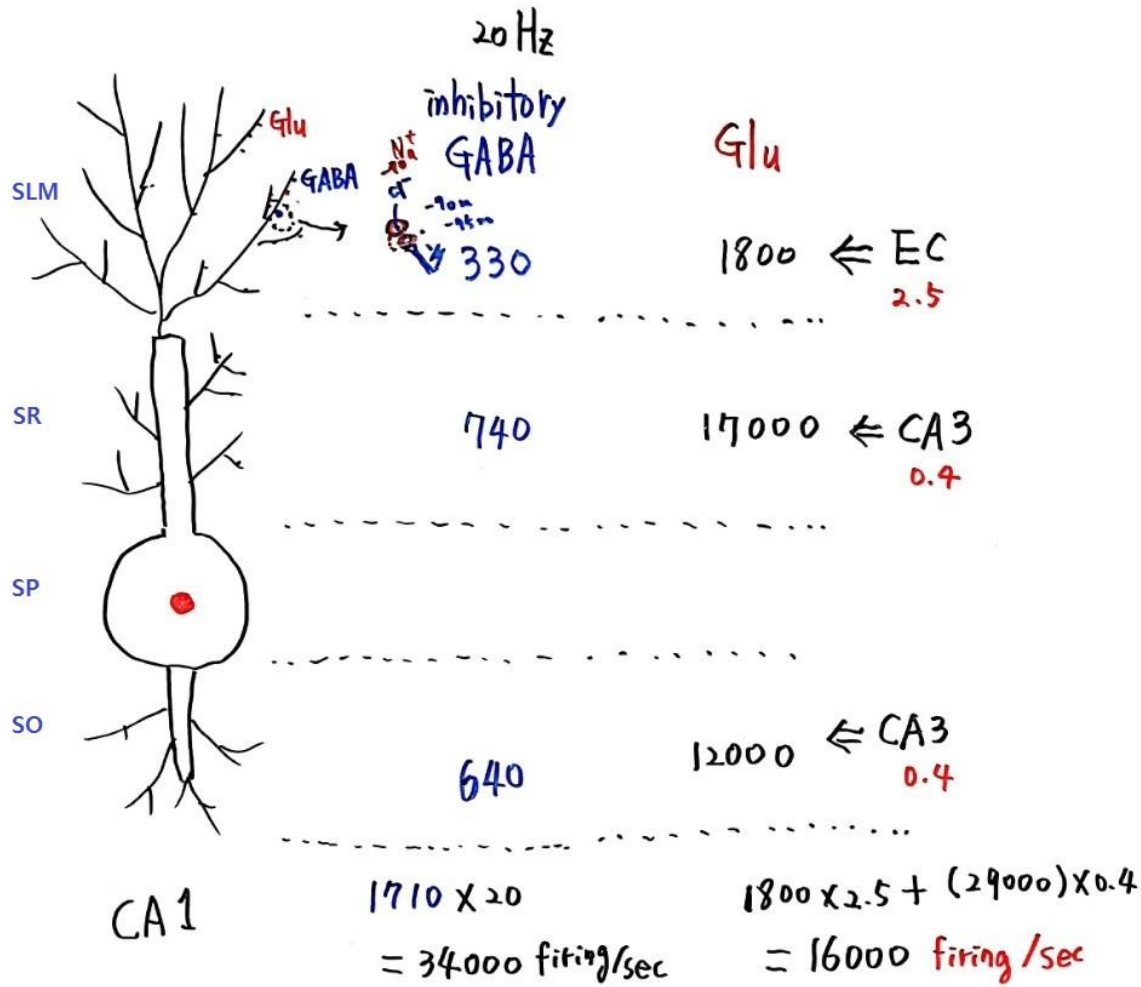 20 Hz
inhibitory
GABA
Glu
Glu
GABA
Na+
Cl-
SLM
330
1800 ⇐ EC
2.5
SR
740
17000 ⇐ CA3
0.4
SP
SO
640
12000 ⇐ CA3
0.4
CA1
1710 × 20
= 34000 firing/sec
1800 × 2.5 + (29000) × 0.4
= 16000 firing/sec